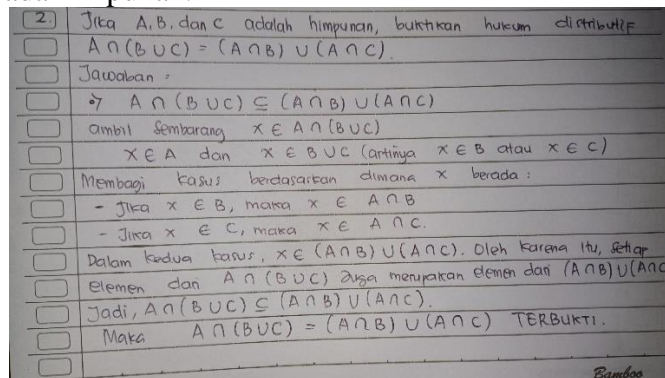 2. Jika A, B, dan C adalah himpunan, buktikan hukum distributif
A ∩ (B ∪ C) = (A ∩ B) ∪ (A ∩ C).
Jawaban :
A ∩ (B ∪ C) ⊆ (A ∩ B) ∪ (A ∩ C)
ambil sembarang x ∈ A ∩ (B ∪ C)
x ∈ A dan x ∈ B ∪ C (artinya x ∈ B atau x ∈ C)
Membagi kasus berdasarkan dimana x berada :
- Jika x ∈ B, maka x ∈ A ∩ B
- Jika x ∈ C, maka x ∈ A ∩ C.
Dalam kedua kasus, x ∈ (A ∩ B) ∪ (A ∩ C). Oleh karena itu, setiap
elemen dari A ∩ (B ∪ C) juga merupakan elemen dari (A ∩ B) ∪ (A ∩ C
Jadi, A ∩ (B ∪ C) ⊆ (A ∩ B) ∪ (A ∩ C).
Maka A ∩ (B ∪ C) = (A ∩ B) ∪ (A ∩ C) TERBUKTI.
Bamboo